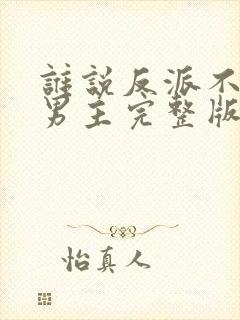 誰說反派不
男主完整版
怡真人